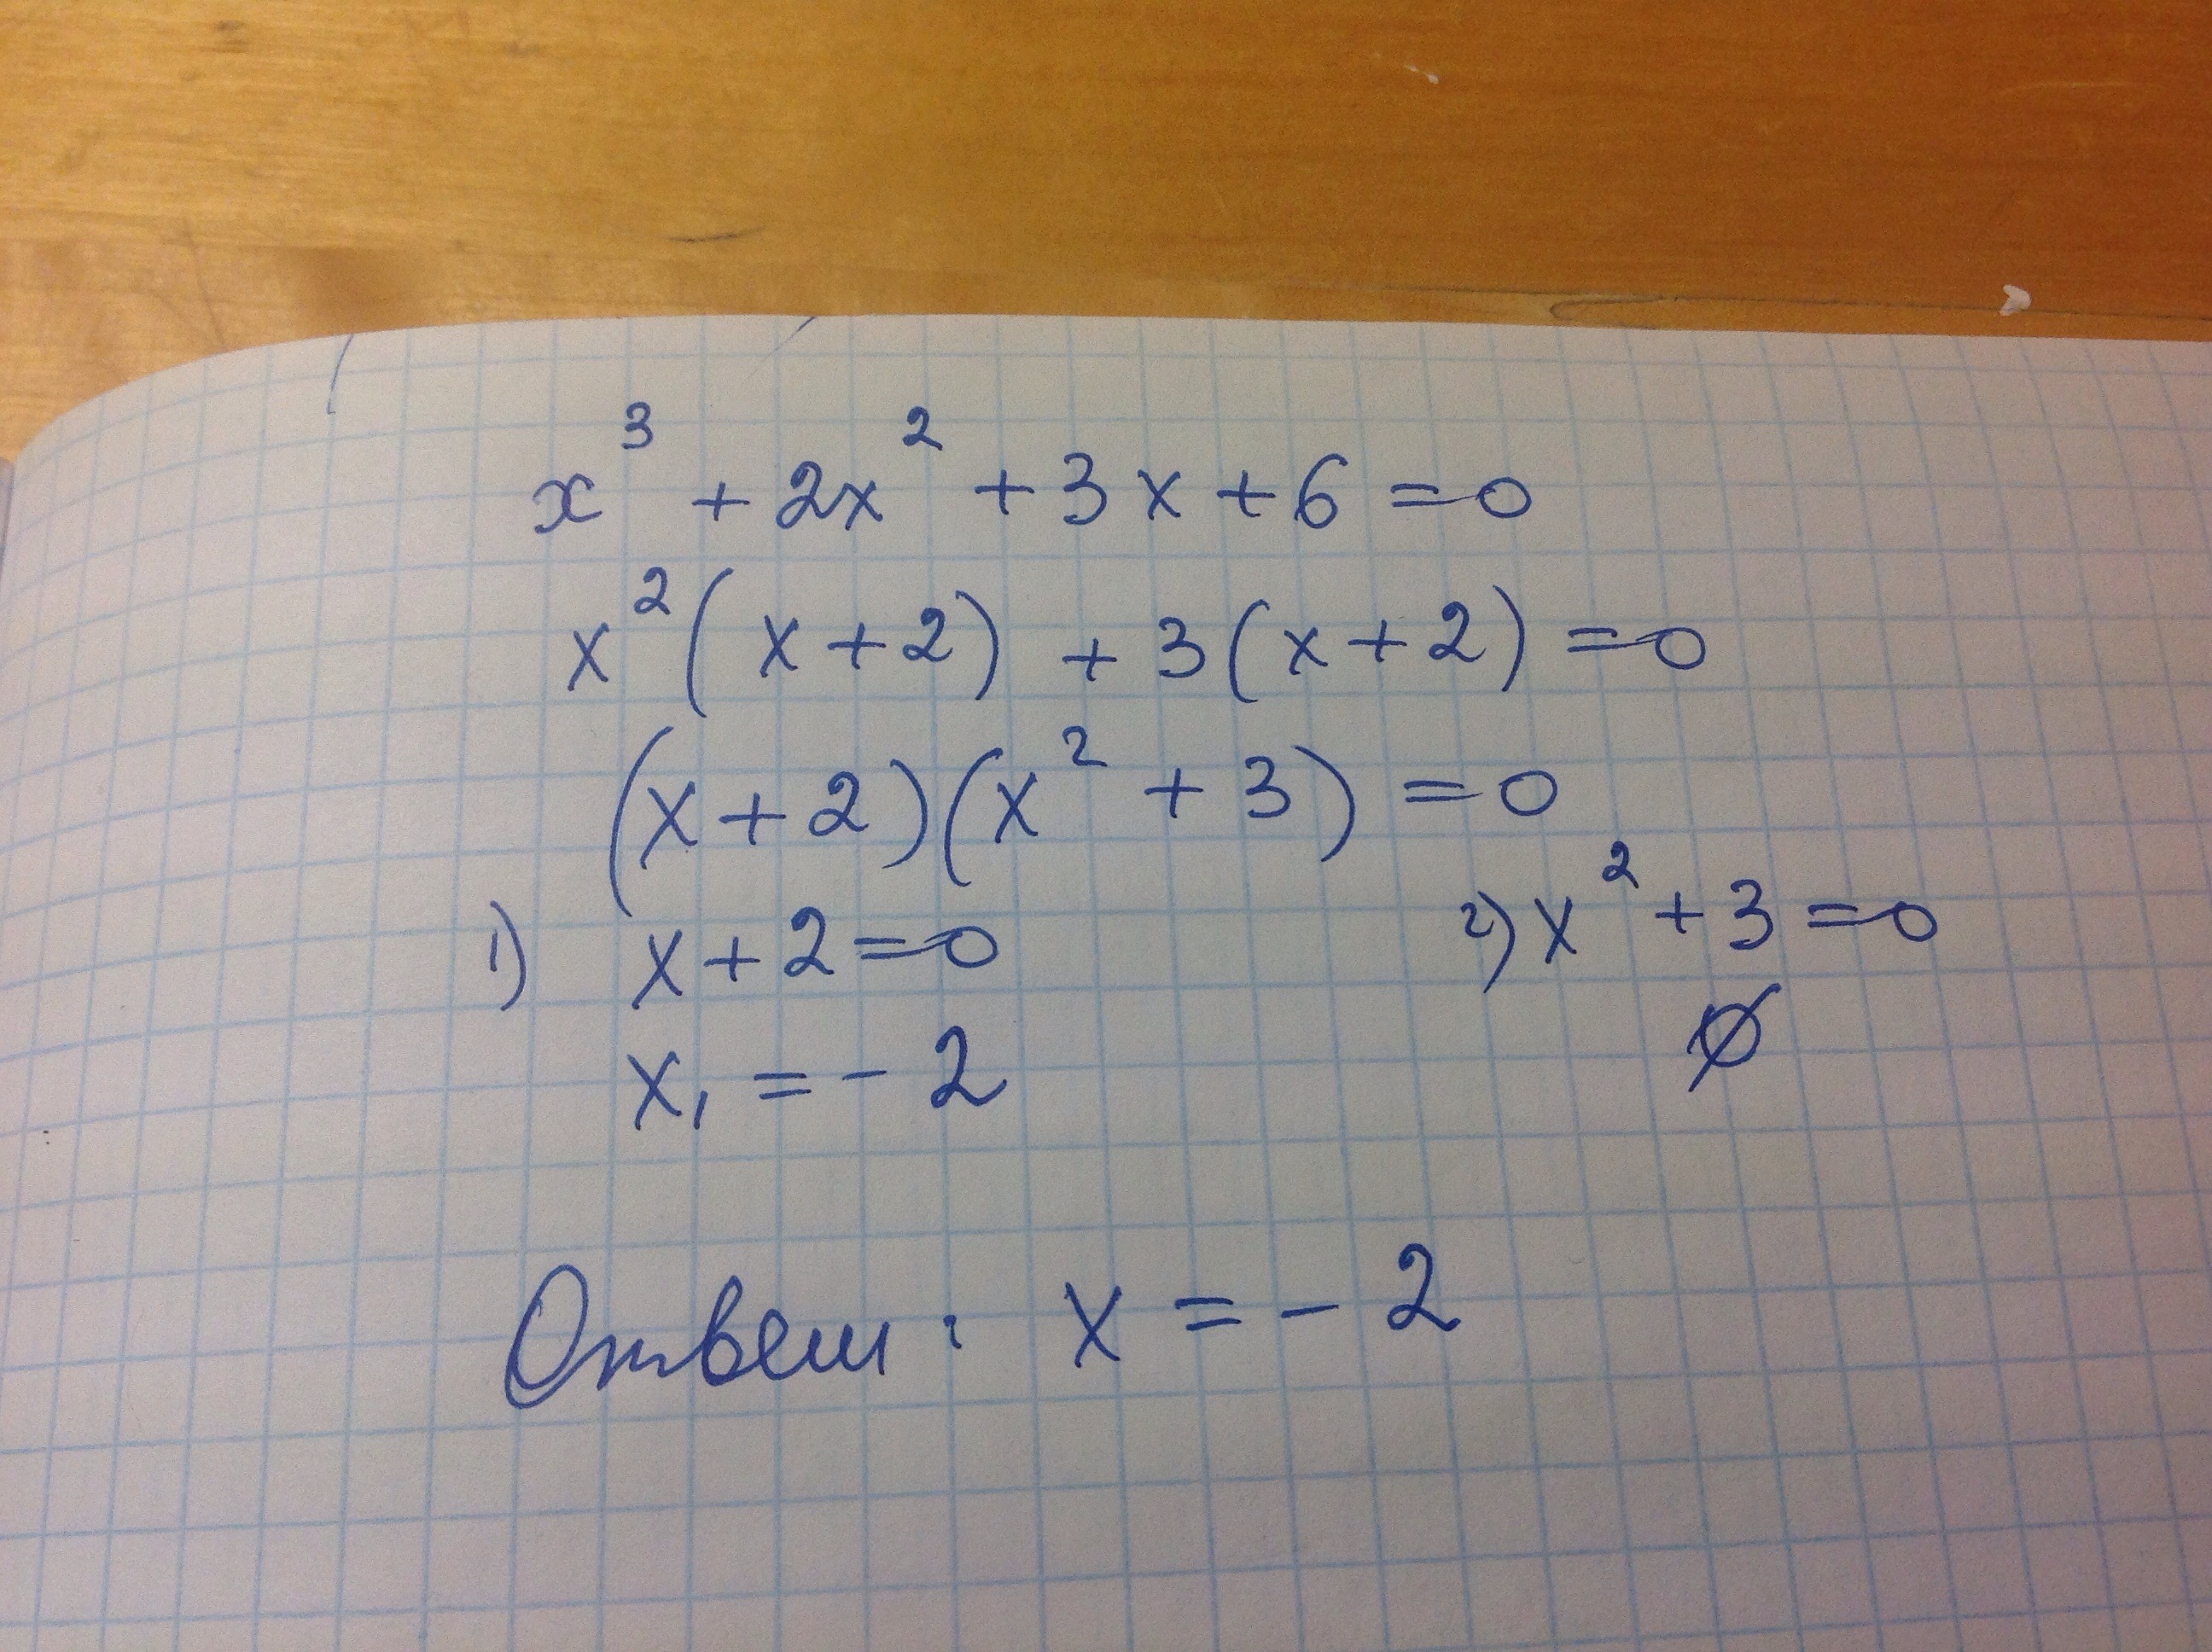 x³ + 2x² + 3x + 6 = 0
x²(x + 2) + 3(x + 2) = 0
(x + 2)(x² + 3) = 0
1) x + 2 = 0 2) x² + 3 = 0
x₁ = - 2 ∅
Ответ: x = - 2